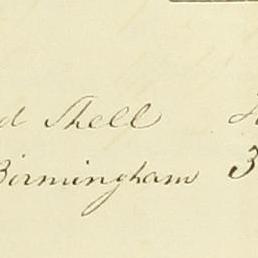 d Shell
Birmingham 3